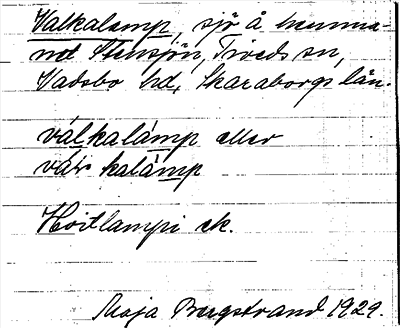 Valkalamp, sjö å hemma-
nd Stensjön, Tiveds sn,
Vadsbo hd, Skaraborgs län.
válkalámp eller
kalámp
ek.
Maja Bergstrand 1929.